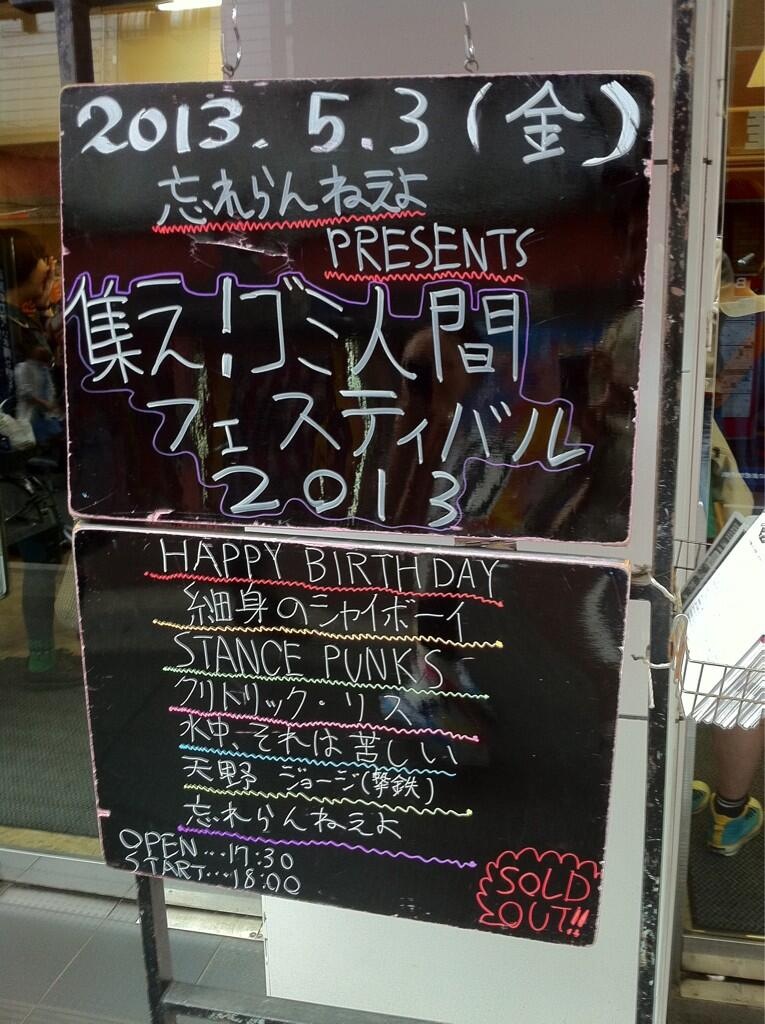 2013.5.3(金)
忘れらんねえよ
PRESENTS
集え!ゴミ人間
フェスティバル
2013
HAPPY BIRTHDAY
細身のシャイボーイ
STANCE PUNKS
クリトリック・リス
水中、それは苦しい
天野 ジョージ(撃鉄)
忘れらんねえよ
OPEN…17:30
START…18:00
SOLD
OUT!!